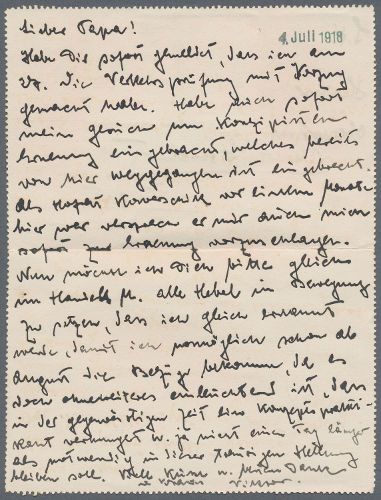 Lieber Papa!
4. Juli 1918
Habe Dir sofort gemeldet, dass ich am
27. die Verkehrsprüfung mit Vorzug
gemacht habe. Habe auch sofort
mein Gesuch um Konzipisten
ernennung eingebracht, welches bereits
von hier weggegangen ist
als Hofrat vor einem Monate
hier war versprach er mir auch mich
sofort zur Ernennung vorzuschlagen.
Nun möchte ich Dich bitte gleich
im Handels M. alle Hebel in Bewegung
zu setzen, dass ich gleich ernannt
werde, damit ich womöglich schon ab
August die Bezüge bekomme, da es
doch ohneweiteres einleuchtend ist, dass
in der gegenwärtigen Zeit ein Konzeptsprakti-
kant verhungert u. ja nicht einen Tag länger
als notwendig in dieser traurigen Stellung
bleiben soll. Viele Küsse u. vielen Dank
u.